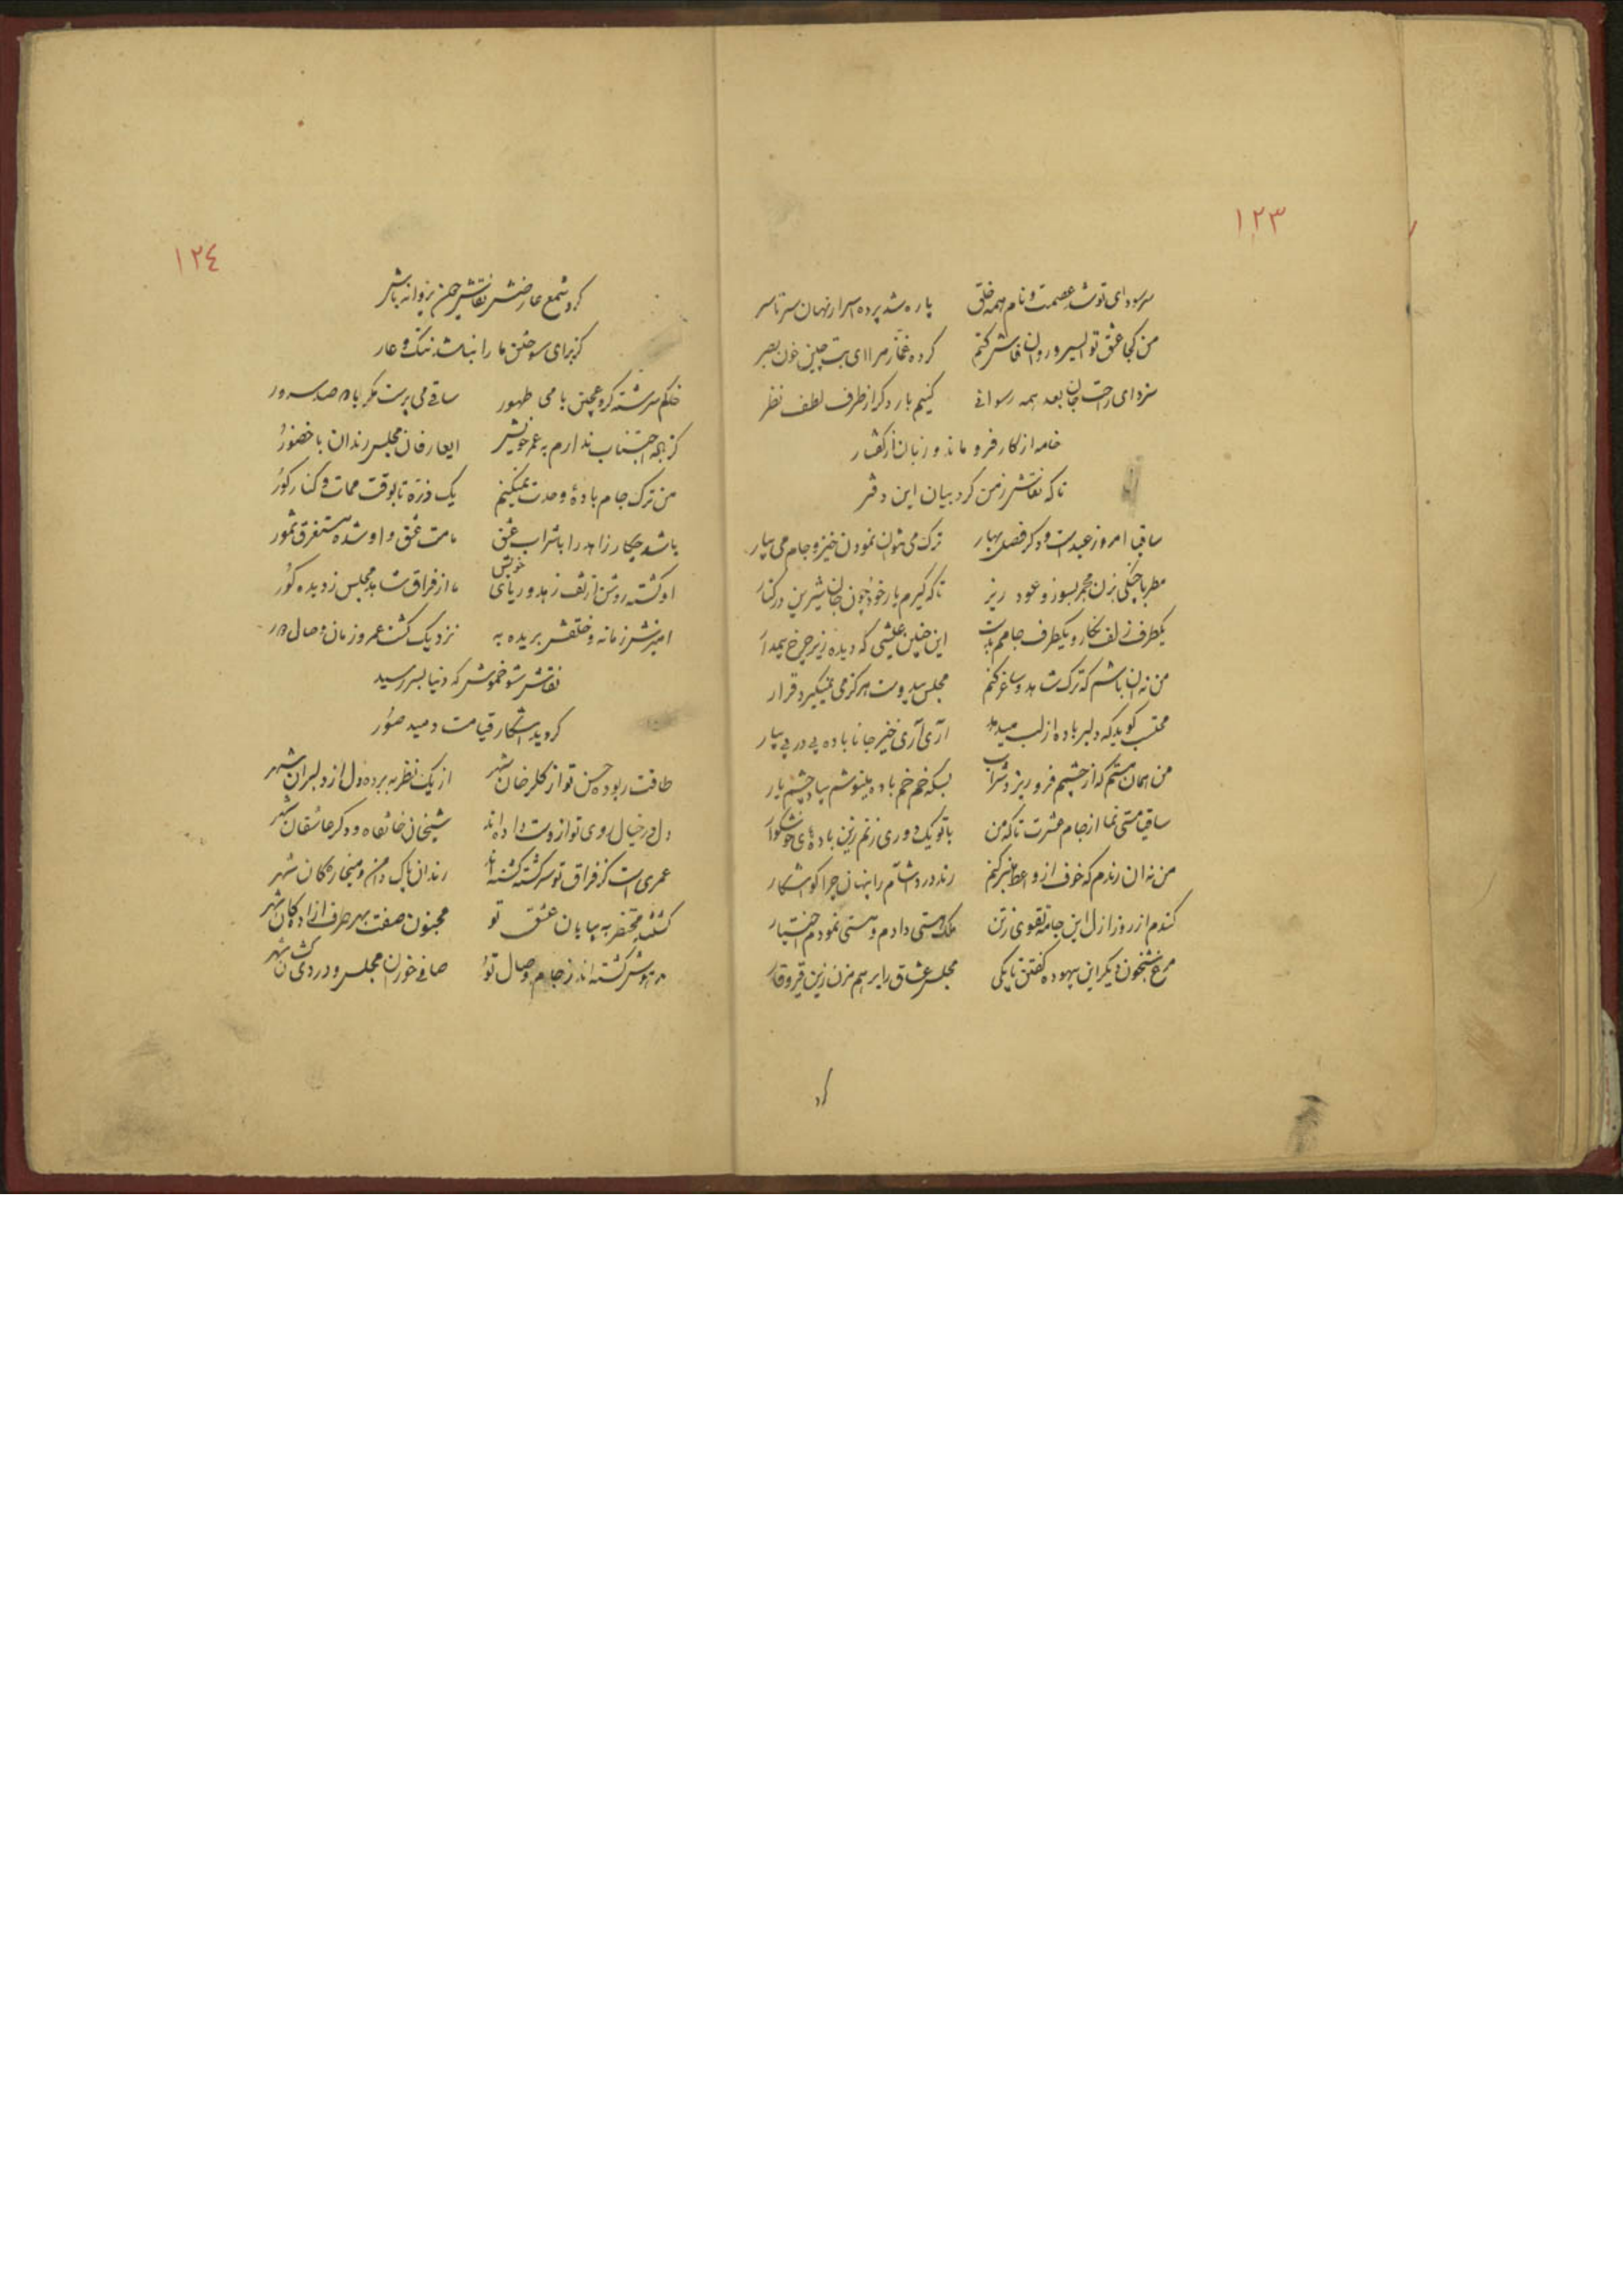 ١٢٣
سر سودای تو شد عصمت و نام همه خلق پاره شد پرده اسرار نهان سرتاسر
من کجا عشق تو فاش کنم کرده غماز مرا ای بت چین خون بصر
سزد ای راحت جان بعد همه رسوائی کنیم بار دکر از طرف لطف نظر
خامه از کار فرو ماند و زبان از کفتار
تا که نقاش ز من کرد بیان این دفتر
ساقیا امروز عید است و دکر فصل بهار ترک می نتوان نمودن خیز و جام می بیار
مطربا چنکی بزن مجمر بسوز و عود ریز تا که کیرم یار خود چون جان شیرین در کنار
یکطرف زلف نکار و یکطرف جامم بدست این چنین عیشی که دیده زیر چرخ بیمدار
من نه آن باشم که ترک شاهد و ساغر کنم مجلس بیدوست هرکز می نمیکیرد قرار
محتسب کوید که دلبر باده از لب میدهد آری آری خیز جانا باده پی در پی بیار
من همان مستم که از چشمم فرو ریزد شراب بسکه خم خم باده مینوشم بیاد چشم یار
ساقیا مستی نما از جام عشرت تا که من با تو یک دوری زنم زین باده های خوشکوار
من نه آن رندم که خوف از واعظ منبر کنم رند درد آشام را پنهان چرا کو آشکار
کندم از روز ازل این جامه تقوی ز تن ملک هستی دادم و مستی نمودم اختیار
مرغ شبخون دیکر این بیهوده کفتن تا بکی مجلس عشاق را بر هم مزن زین قیر و قار
کرد
١٢٤
کرد شمع عارضش نقاش چون پروانه باش
کز برای سوختن ما را نباشد ننک و عار
خاکم سرشته کرد عجین با می طهور ساقی می پرست مکر با صد سرور
کز باده اجتناب ندارم به عمر خویش ای عارفان مجلس رندان با حضور
من ترک جام باده وحدت نمیکنم یک ذره تا بوقت ممات و کنار کور
باشد چکار زاهد را با شراب عشق ما مست عشق و او شده مستغرق
او کشته روشن از تف زهد و ریای خویش ما از فراق شاهد مجلس ز دیده کور
زمانه و خلقش بریده به نزدیک کشت عمر و زمان وصال دور
نقاش شو خموش که دنیا بسر رسید
کردید آشکار قیامت دمید صور
طاقت ربوده حسن تو از کلرخان شهر از یک نظر به برده دل از دلبران شهر
دل در خیال روی تو از دست داده اند شیخان خانقاه و دکر عاشقان شهر
عمری است کز فراق تو سرکشته کشته اند رندان پاک دامن و میخاره کان شهر
کشته محتضر به بیابان عشق تو مجنون صفت بهر طرف آزاده کان شهر
مدهوش کشته اند ز جام وصال تو صافی خوران مجلس و دردی کشان شهر